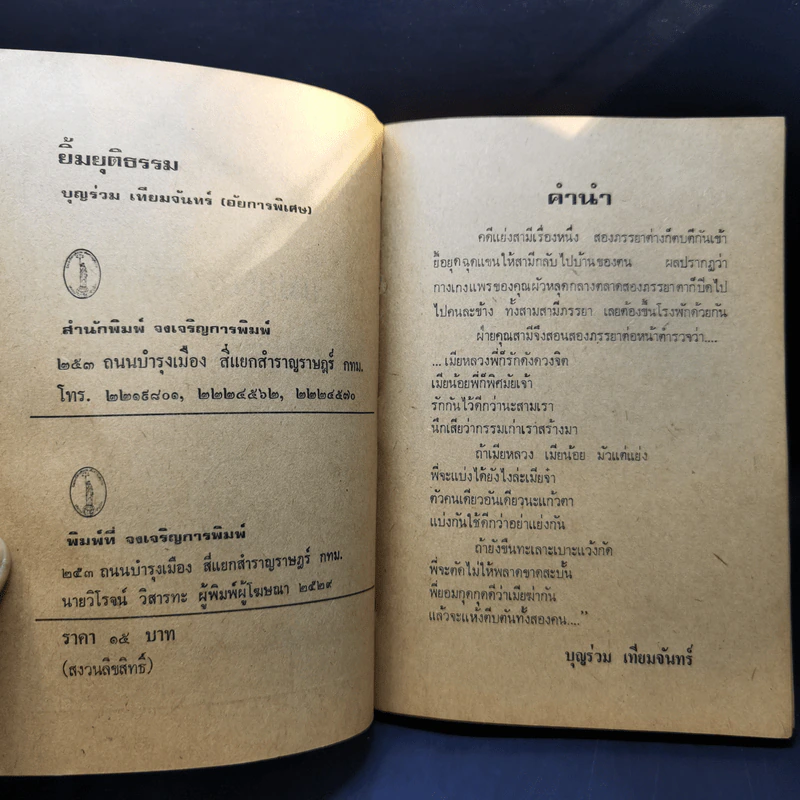 ยิ้มยุติธรรม
บุญร่วม เทียมจันทร์ (อัยการพิเศษ)
สำนักพิมพ์ จงเจริญการพิมพ์
๒๕๓ ถนนบำรุงเมือง สี่แยกสำราญราษฎร์ กทม.
โทร. ๒๒๑๙๘๐๑, ๒๒๒๔๕๖๒, ๒๒๒๔๕๗๐
พิมพ์ที่ จงเจริญการพิมพ์
๒๕๓ ถนนบำรุงเมือง สี่แยกสำราญราษฎร์ กทม.
นายวิโรจน์ วิสารทะ ผู้พิมพ์ผู้โฆษณา ๒๕๒๙
ราคา ๑๕ บาท
(สงวนลิขสิทธิ์)
คำนำ
คดีแย่งสามีเรื่องหนึ่ง สองภรรยาต่างก็ตบตีกันเข้า
ยื้อยุดฉุดแขนให้สามีกลับไปบ้านของตน ผลปรากฏว่า
กางเกงแพรของคุณผัวหลุดกลางตลาดสองภรรยาตาก็ปิดไป
ไปคนละข้าง ทั้งสามสามีภรรยา เลยต้องขึ้นโรงพักด้วยกัน
ฝ่ายคุณสามีจึงสอนสองภรรยาต่อหน้าตำรวจว่า....
...เมียหลวงพี่ก็รักดังดวงจิต
เมียน้อยพี่ก็พิศมัยเจ้า
รักกันไว้ดีกว่านะสามเรา
นึกเสียว่ากรรมเก่าเราสร้างมา
ถ้าเมียหลวง เมียน้อย มัวแต่แย่ง
พี่จะแบ่งได้ยังไงล่ะเมียจ๋า
ตัวคนเดียวอันเดียวนะแก้วตา
แบ่งกันใช้ดีกว่าอย่าแย่งกัน
ถ้ายังขืนทะเลาะเบาะแว้งกัด
พี่จะตัดไม่ให้พลาดขาดสะบั้น
พี่ยอมกุดกุดดีกว่าเมียฆ่ากัน
แล้วจะแห้งตีบตันทั้งสองคน....”
บุญร่วม เทียมจันทร์